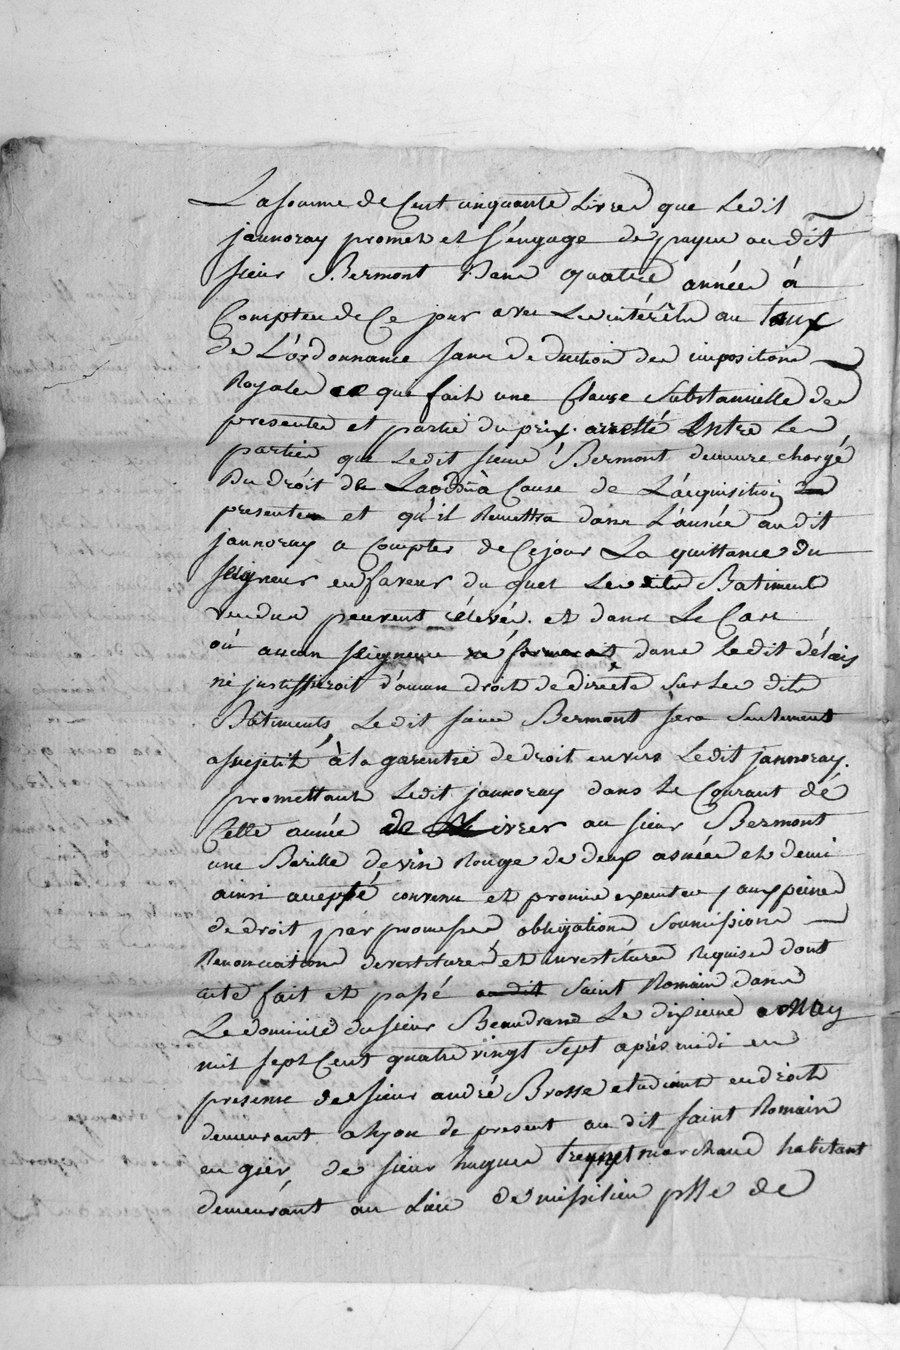 La somme de Cent cinquante Livres que Ledit
jannoray promet et s'engage de payer au dit
sieur Bermont Dans quatre années à
Compter de Ce jour avec Les intérêts au taux
de L'ordonnance sans deduction des impositions
Royales ce que fait une Clause Substantielle des
presentes et partie du prix arretté Entre Les
parties que Ledit sieur Bermont demeure chargé
Du droit de Laods à Cause de L'acquisition
presente et qu'il Remettra dans L'année au dit
jannoray a Compter de Ce jour La quittance du
seigneur en faveur du quel Lesdits Batiments
vendus peuvent être et dans Le Cas
où aucun seigneur ne dans ledit délais
ne justifieroit d'aucun droit de directe sur Les dits
Batiments, Ledit sieur Bermont sera seulement
assujetit à la garentie de droit envers Ledit jannoray.
promettant Ledit jannoray dans Le Courant de
Cette année de Livrer au sieur Bermont
une Barille de vin Rouge de deux asnées et demi
ainsi accepté convenu et promis executer aux peines
de droit par promesses obligations Soumissions
Renonciations devestitures et investitures Requises dont
acte fait et passé audit Saint Romain dans
Le domicile du sieur Beaudrand Le dixieme May
mil sept Cent quatre vingt sept après midi en
presence de sieur andré Brosse etudiant en droit
demeurant a Lyon de present au dit saint Romain
en gier, de sieur hugues marchand habitant
demeurant au Lieu de missilieu psse de